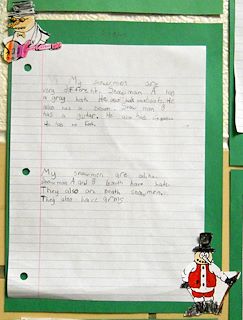 My snowmen are
very different. Snowman A has
a gray hat. He also has
also has a broom. Snowman
has a guitar. He also has
My snowmen are alike.
Snowmen A and B both have hats.
They also are both snowmen.
They also have arms.